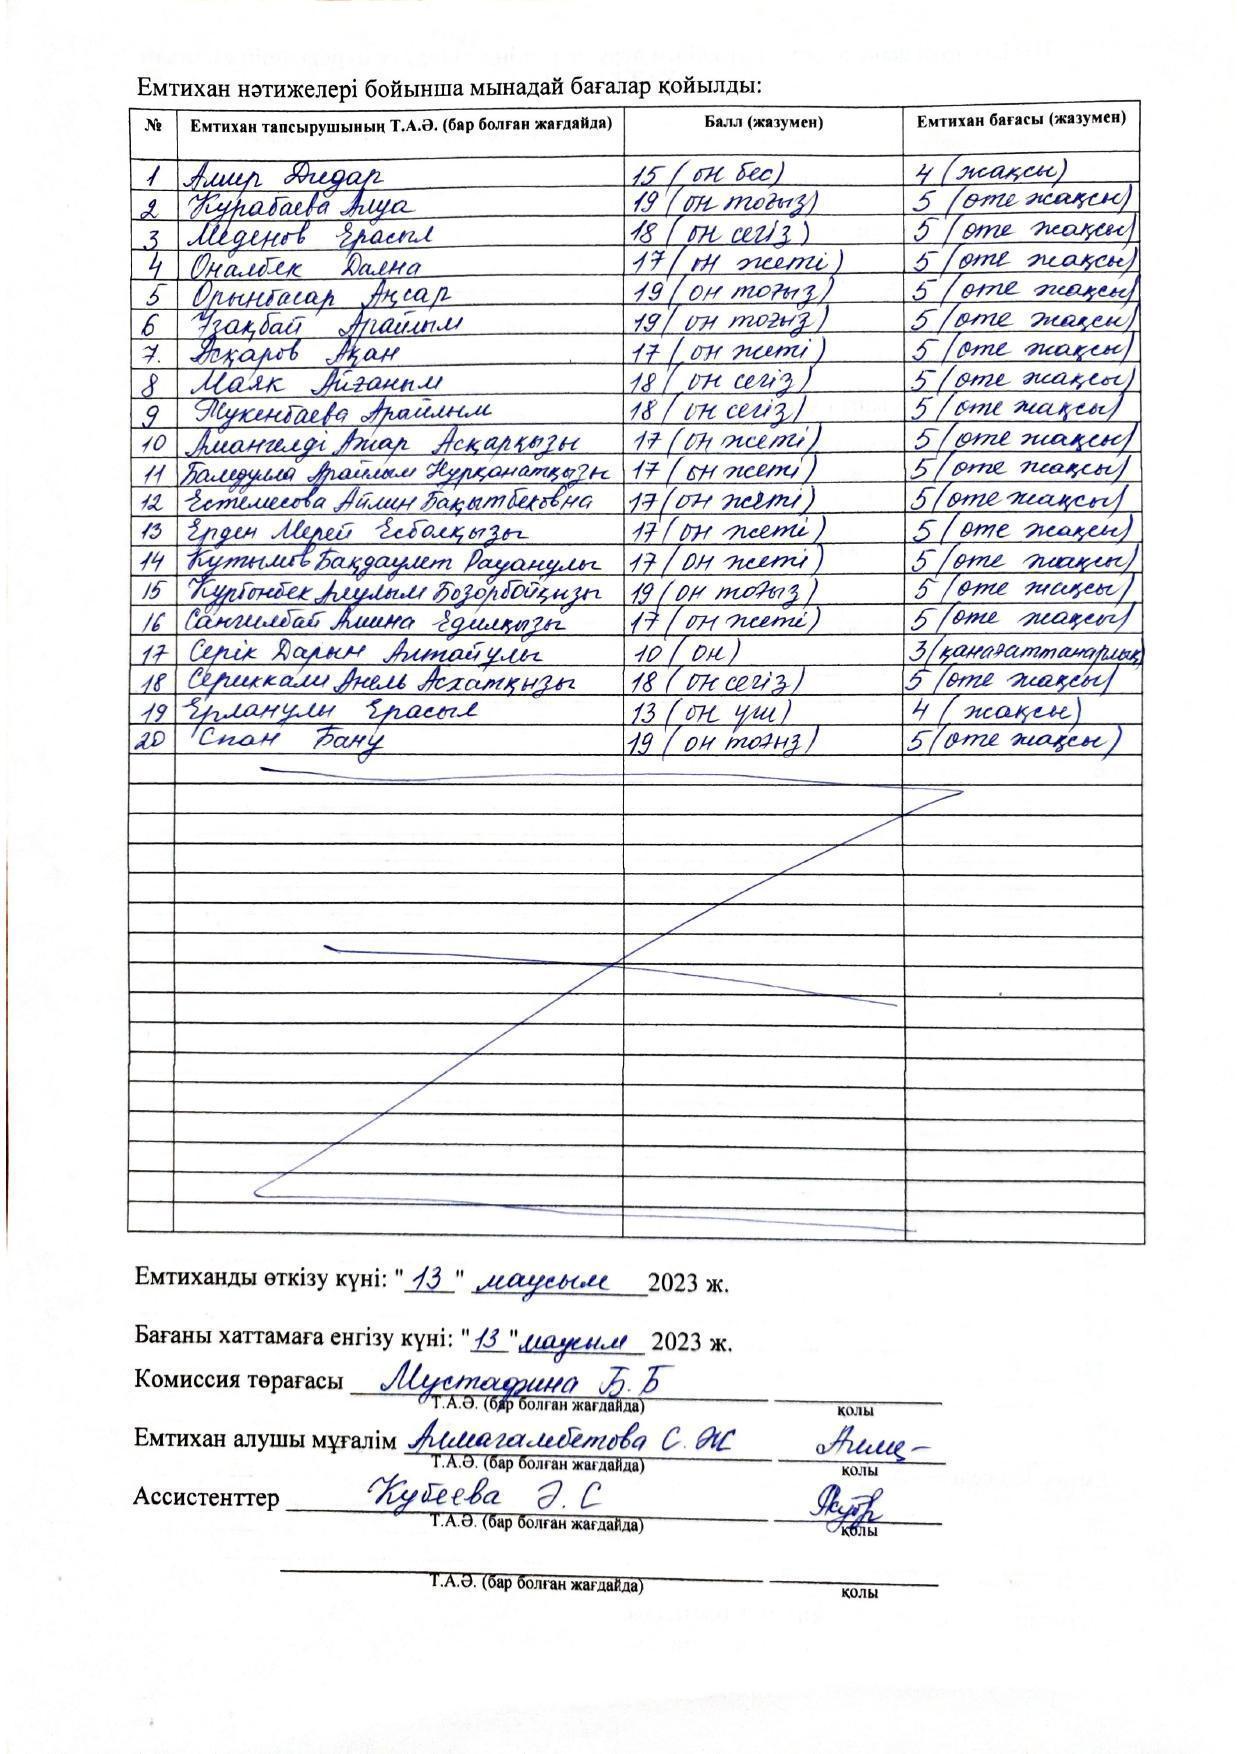 Емтихан нәтижелері бойынша мынадай бағалар қойылды:
№ Емтихан тапсырушының Т.А.Ә. (бар болған жағдайда) Балл (жазумен) Емтихан бағасы (жазумен)
1 Амир Дидар 15 (он бес) 4 (жақсы)
2 Курабаева Алуа 19 (он тоғыз) 5 (өте жақсы)
3 Меденов Ерасыл 18 (он сегіз) 5 (өте жақсы)
4 Оналбек Даяна 17 (он жеті) 5 (өте жақсы)
5 Орынбасар Аңсар 19 (он тоғыз) 5 (өте жақсы)
6 Ұзақбай Арайлым 19 (он тоғыз) 5 (өте жақсы)
7. Асқаров Ақан 17 (он жеті) 5 (өте жақсы)
8 Маяк Айғаным 18 (он сегіз) 5 (өте жақсы)
9 Тукенбаева Арайлым 18 (он сегіз) 5 (өте жақсы)
10 Амангелді Ажар Асқарқызы 17 (он жеті) 5 (өте жақсы)
11 Арайлым Нұрқанатқызы 17 (он жеті) 5 (өте жақсы)
12 Естемесова Айлин Бақытбековна 17 (он жеті) 5 (өте жақсы)
13 Ерден Мерей Есболқызы 17 (он жеті) 5 (өте жақсы)
14 Кутымов Бақдаулет Рауанулы 17 (он жеті) 5 (өте жақсы)
15 Курбонбек Бозорбойқизи 19 (он тоғыз) 5 (өте жақсы)
16 Сангилбай Амина Едилқызы 17 (он жеті) 5 (өте жақсы)
17 Серік Дарын Алтайулы 10 (он) 3 (қанағаттанарлық)
18 Сериккали Анель Асхатқызы 18 (он сегіз) 5 (өте жақсы)
19 Ерланулы Ерасыл 13 (он үш) 4 (жақсы)
20 Спан Бану 19 (он тоғыз) 5 (өте жақсы)
Емтиханды өткізу күні: "13" маусым 2023 ж.
Бағаны хаттамаға енгізу күні: "13" маусым 2023 ж.
Комиссия төрағасы Мустафина Б.Б
Т.А.Ә. (бар болған жағдайда) қолы
Емтихан алушы мұғалім Алмагамбетова С.Ж
Т.А.Ә. (бар болған жағдайда) қолы
Ассистенттер Кубеева Ә.С
Т.А.Ә. (бар болған жағдайда) қолы
Т.А.Ә. (бар болған жағдайда) қолы